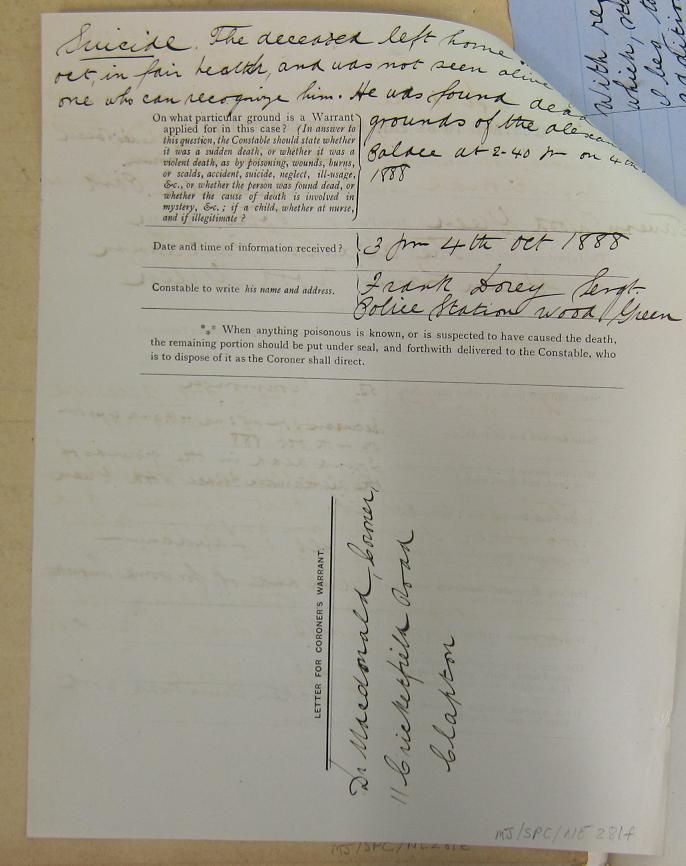 Suicide. The deceased left home
oct, in fair health, and was not seen alive
one who can recognize him. He was found dead
grounds of the alexan
Palace at 2-40 pm on 4th
1888
On what particular ground is a Warrant
applied for in this case? (In answer to
this question, the Constable should state whether
it was a sudden death, or whether it was a
violent death, as by poisoning, wounds, burns,
or scalds, accident, suicide, neglect, ill-usage,
&c., or whether the person was found dead, or
whether the cause of death is involved in
mystery, &c.; if a child, whether at nurse,
and if illegitimate?
Date and time of information received?
3 pm 4th Oct 1888
Constable to write his name and address.
Frank Dorey Sergt.
Police Station Wood Green
*⁎* When anything poisonous is known, or is suspected to have caused the death,
the remaining portion should be put under seal, and forthwith delivered to the Constable, who
is to dispose of it as the Coroner shall direct.
LETTER FOR CORONER'S WARRANT.
Dr Macdonald, Coroner,
11 Cricketfield Road
Clapton
MJ/SPC/NE 281f
MJ/SPC/NE281e
With re
which,